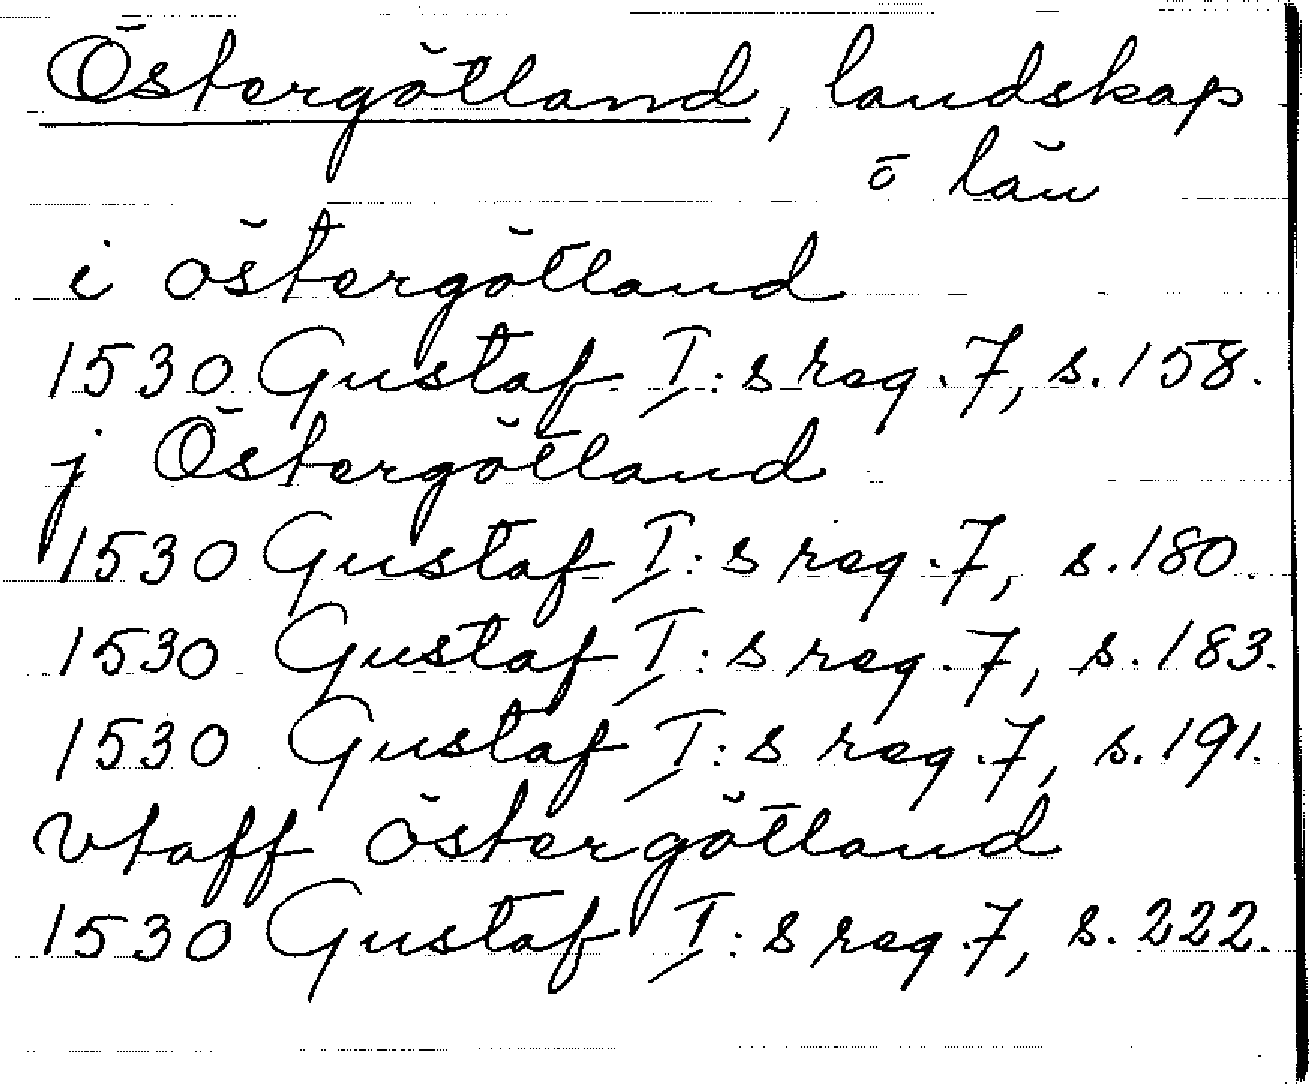 Östergötland, landskap
o län
i östergötland
1530 Gustaf I:s reg. 7, s. 158.
j Östergötland
1530 Gustaf I:s reg. 7, s. 180.
1530 Gustaf I:s reg. 7, s. 183.
1530 Gustaf I:s reg. 7, s. 191.
vtaff östergötland
1530 Gustaf I:s reg. 7, s. 222.